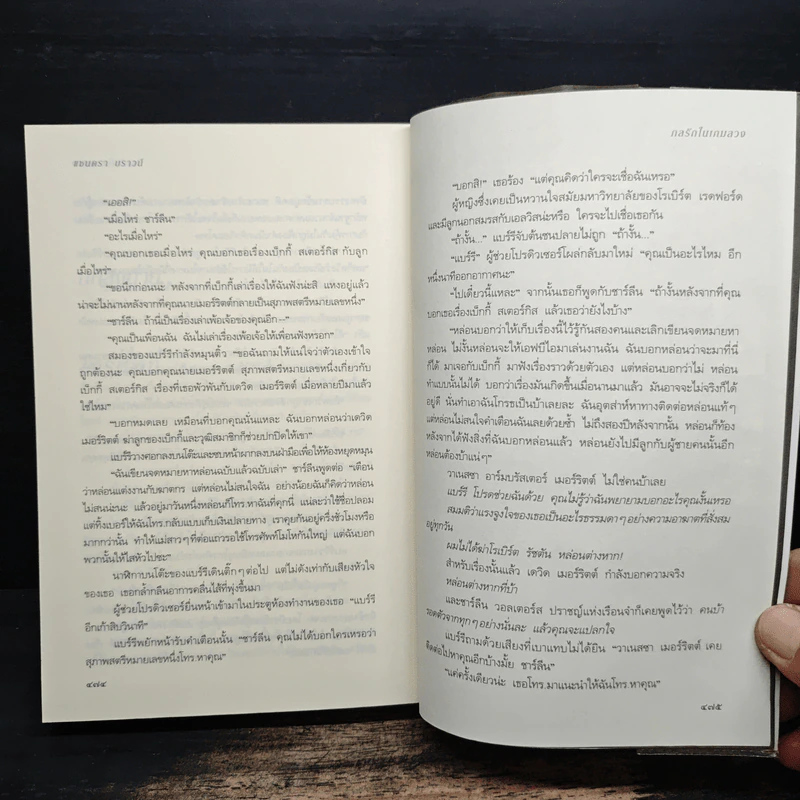 แซนดรา บราวน์
“เออสิ!”
“เมื่อไหร่ ชาร์ลีน”
“อะไรเมื่อไหร่”
“คุณบอกเธอเมื่อไหร่ คุณบอกเธอเรื่องเบ็กกี้ สเตอร์กิส กับลูก
เมื่อไหร่”
“ขอนึกก่อนนะ หลังจากที่เบ็กกี้เล่าเรื่องให้ฉันฟังน่ะสิ แหงอยู่แล้ว
น่าจะไม่นานหลังจากที่คุณนายเมอร์ริตต์กลายเป็นสุภาพสตรีหมายเลขหนึ่ง”
“ชาร์ลีน ถ้านี่เป็นเรื่องเล่าเพ้อเจ้อของคุณอีก–”
“คุณเป็นเพื่อนฉัน ฉันไม่เล่าเรื่องเพ้อเจ้อให้เพื่อนฟังหรอก”
สมองของแบร์รีกำลังหมุนติ้ว “ขอฉันถามให้แน่ใจว่าตัวเองเข้าใจ
ถูกต้องนะ คุณบอกคุณนายเมอร์ริตต์ สุภาพสตรีหมายเลขหนึ่งเกี่ยวกับ
เบ็กกี้ สเตอร์กิส เรื่องที่เธอพัวพันกับเดวิด เมอร์ริตต์ เมื่อหลายปีมาแล้ว
ใช่ไหม”
“บอกหมดเลย เหมือนที่บอกคุณนั่นแหละ ฉันบอกหล่อนว่าเดวิด
เมอร์ริตต์ ฆ่าลูกของเบ็กกี้และวุฒิสมาชิกก็ช่วยปกปิดให้เขา”
แบร์รีวางศอกลงบนโต๊ะและซบหน้าผากลงบนฝ่ามือเพื่อให้ห้องหยุดหมุน
“ฉันเขียนจดหมายหาหล่อนฉบับแล้วฉบับเล่า” ชาร์ลีนพูดต่อ “เตือน
ว่าหล่อนแต่งงานกับฆาตกร แต่หล่อนไม่สนใจฉัน อย่างน้อยฉันก็คิดว่าหล่อน
ไม่สนน่ะนะ แล้วอยู่มาวันหนึ่งหล่อนก็โทร.หาฉันที่คุกนี่ แน่ละว่าใช้ชื่อปลอม
แต่ทิ้งเบอร์ให้ฉันโทร.กลับแบบเก็บเงินปลายทาง เราคุยกันอยู่ครึ่งชั่วโมงหรือ
มากกว่านั้น ทำให้แม่สาวๆ ที่ต่อแถวรอใช้โทรศัพท์โมโหกันใหญ่ แต่ฉันบอก
พวกนั้นให้ไสหัวไปซะ”
นาฬิกาบนโต๊ะของแบร์รีเดินติ๊กๆ ต่อไป แต่ไม่ดังเท่ากับเสียงหัวใจ
ของเธอ เธอกล้ำกลืนอาการคลื่นไส้ที่พุ่งขึ้นมา
ผู้ช่วยโปรดิวเซอร์ยื่นหน้าเข้ามาในประตูห้องทำงานของเธอ “แบร์รี
อีกเก้าสิบวินาที”
แบร์รีพยักหน้ารับคำเตือนนั้น “ชาร์ลีน คุณไม่ได้บอกใครเหรอว่า
สุภาพสตรีหมายเลขหนึ่งโทร.หาคุณ”
๔๗๔
กลรักในเกมลวง
“บอกสิ!” เธอร้อง “แต่คุณคิดว่าใครจะเชื่อฉันเหรอ”
ผู้หญิงซึ่งเคยเป็นหวานใจสมัยมหาวิทยาลัยของโรเบิร์ต เรดฟอร์ด
และมีลูกนอกสมรสกับเอลวิสน่ะหรือ ใครจะไปเชื่อเธอกัน
“ถ้างั้น...” แบร์รีจับต้นชนปลายไม่ถูก “ถ้างั้น...”
“แบร์รี” ผู้ช่วยโปรดิวเซอร์โผล่กลับมาใหม่ “คุณเป็นอะไรไหม อีก
หนึ่งนาทีออกอากาศนะ”
“ไปเดี๋ยวนี้แหละ” จากนั้นเธอก็พูดกับชาร์ลีน “ถ้างั้นหลังจากที่คุณ
บอกเธอเรื่องเบ็กกี้ สเตอร์กิส แล้วเธอว่ายังไงบ้าง”
“หล่อนบอกว่าให้เก็บเรื่องนี้ไว้รู้กันสองคนและเลิกเขียนจดหมายหา
หล่อน ไม่งั้นหล่อนจะให้เอฟบีไอมาเล่นงานฉัน ฉันบอกหล่อนว่าจะมาที่นี่
ก็ได้ มาเจอกับเบ็กกี้ มาฟังเรื่องราวด้วยตัวเอง แต่หล่อนบอกว่าไม่ หล่อน
ทำแบบนั้นไม่ได้ บอกว่าเรื่องมันเกิดขึ้นเมื่อนานมาแล้ว มันอาจจะไม่จริงก็ได้
อยู่ดี นั่นทำเอาฉันโกรธเป็นบ้าเลยละ ฉันอุตส่าห์หาทางติดต่อหล่อนแท้ๆ
แต่หล่อนไม่สนใจคำเตือนฉันเลยด้วยซ้ำ ไม่ถึงสองปีหลังจากนั้น หล่อนก็ท้อง
หลังจากได้ฟังสิ่งที่ฉันบอกหล่อนแล้ว หล่อนยังไปมีลูกกับผู้ชายคนนั้นอีก
หล่อนต้องบ้าแน่ๆ”
วาเนสซา อาร์มบรัสเตอร์ เมอร์ริตต์ ไม่ใช่คนบ้าเลย
แบร์รี โปรดช่วยฉันด้วย คุณไม่รู้ว่าฉันพยายามบอกอะไรคุณงั้นเหรอ
สมมติว่าแรงจูงใจของเธอเป็นอะไรธรรมดาๆ อย่างความอาฆาตที่สั่งสม
อยู่ทุกวัน
ผมไม่ได้ฆ่าโรเบิร์ต รัชตัน หล่อนต่างหาก!
สำหรับเรื่องนั้นแล้ว เดวิด เมอร์ริตต์ กำลังบอกความจริง
หล่อนต่างหากที่บ้า
และชาร์ลีน วอลเตอร์ส ปราชญ์แห่งเรือนจำก็เคยพูดไว้ว่า คนบ้า
รอดตัวจากทุกๆ อย่างนั่นละ แล้วคุณจะแปลกใจ
แบร์รีถามด้วยเสียงที่เบาแทบไม่ได้ยิน “วาเนสซา เมอร์ริตต์ เคย
ติดต่อไปหาคุณอีกบ้างมั้ย ชาร์ลีน”
“แค่ครั้งเดียวน่ะ เธอโทร.มาแนะนำให้ฉันโทร.หาคุณ”
๔๗๕